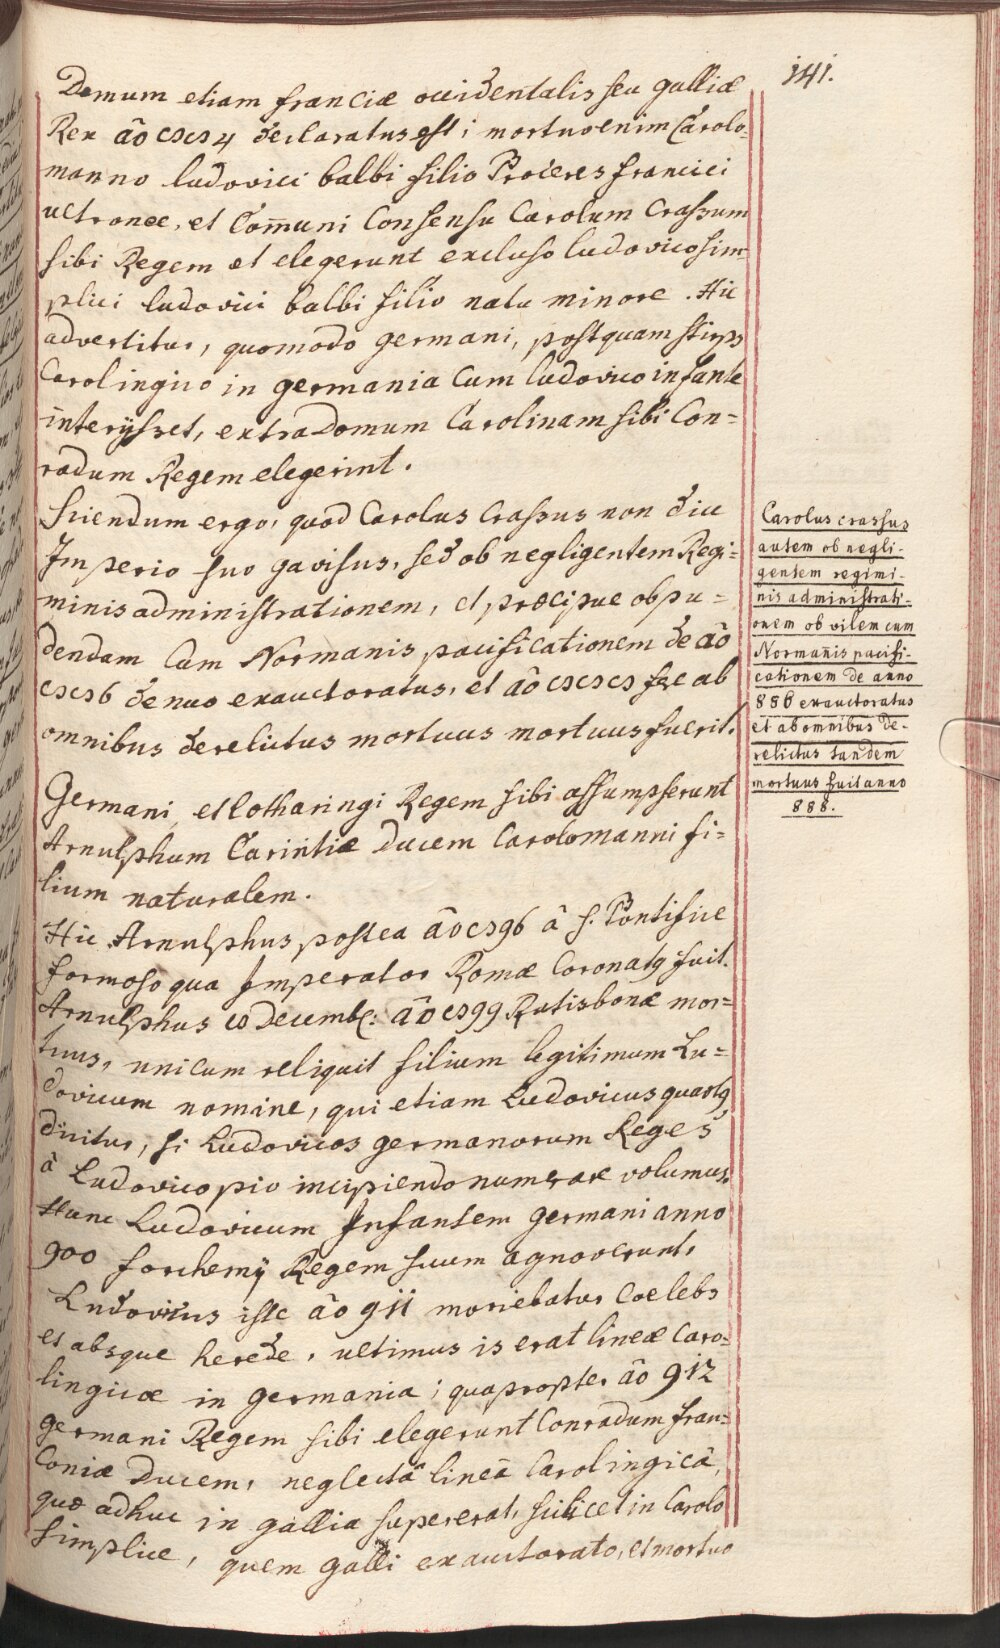 141.
Demum etiam franciæ occidentalis seu galliæ
Rex aõ 884 declaratus est; mortuo enim Carolo-
manno ludovici balbi filio Proceres francici
ultronee, et Com̄uni Consensu Carolum Crassum
sibi Regem et elegerunt excluso ludovico sim-
plici ludovici balbi filio natu minore. Hic
advertitur, quomodo germani, postquam stirps
Carolingico in germania Cum ludovico infante
interijsset, extra Domum Carolinam sibi Con=
radum Regem elegerint.
Sciendum ergo, quod Carolus Crassus non diu
Imperio suo gavisus, sed ob negligentem Regi=
minis administrationem, et præcipue ob pu=
dendam Cum Normanis pacificationem de aõ
886 denuo exauctoratus, et aõ 888 ab
omnibus derelictus mortuus mortuus fuerit.
Germani, et lotharingi Regem sibi assumpserunt
Arnulphum Carintiæ Ducem Carolomanni fi=
lium naturalem.
Hic Arnulphus postea aõ 896 â S. Pontifice
formoso qua Imperator Romæ Coronatq fuit.
Arnulphus 8 Decemb: aõ 899 Ratisbonæ mor=
tuus, unicum reliquit filium legitimum Lu=
dovicum nomine, qui etiam Ludovicus quartq
dicitur, si Ludovicos germanorum Reges
â Ludovico pio incipiendo numerare volumus.
Hunc Ludovicum Infantem germani anno
900 forchemij Regem suum agnoverunt.
Ludovicus iste aõ 911 moriebatur Coelebs
et absque herede, ultimus is erat lineæ Caro=
lingicæ in germania; quapropter aõ 912
germani Regem sibi elegerunt Conradum fran=
Coniæ Ducem, neglectâ lineâ Carolingicâ,
quæ adhuc in gallia supererat, scilicet in Carolo
simplice, quem galli exauctorato, et mortuo
Carolus crassus
autem ob negli-
gentem regimi-
nis administrati-
onem ob vilem cum
Norman̄is pacifi-
cationem de anno
886 exauctoratus
et ab omnibus de-
relictus tandem
mortuus fuit anno
888.